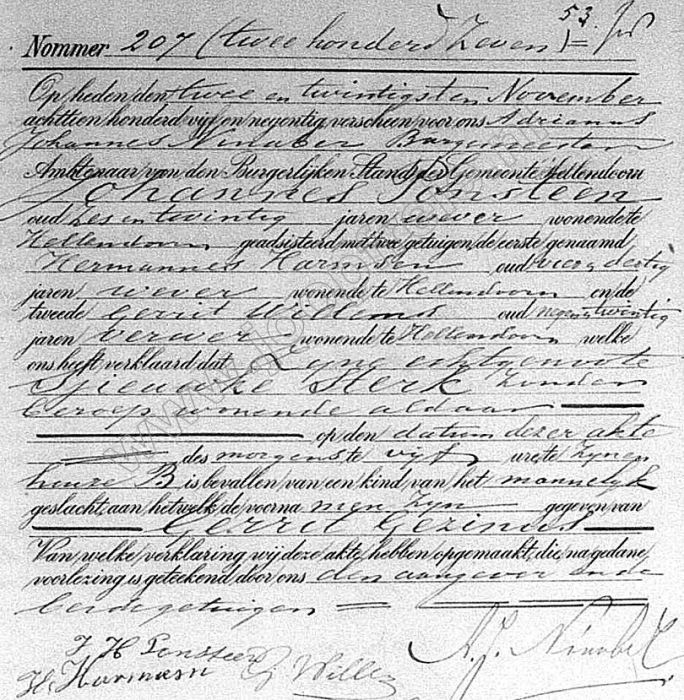 53.
Nommer 207 (twee honderd zeven)
Op heden den twee en twintigsten November
achttien honderd vijf en negentig, verscheen voor ons Adrianus
Johannes Ninaber Burgemeester
Ambtenaar van den Burgerlijken Stand der Gemeente Hellendoorn
Johannes Ponsteen
oud zes en twintig jaren wever wonende te
Hellendoorn geadsisteerd met twee getuigen, de eerste genaamd
Hermannes Harmsen oud vier en dertig
jaren wever wonende te Hellendoorn en de
tweede Gerrit Willems oud negen en twintig
jaren verwer wonende te Hellendoorn welke
ons heeft verklaard dat zijne echtgenoote
Sterk zonder
beroep wonende aldaar
op den datum dezer akte
des morgens te vijf ure, te zijnen
huize B is bevallen van een kind van het mannelijk
geslacht, aan hetwelk de voornamen zijn gegeven van
Gerrit Gezinus
Van welke verklaring wij deze akte hebben opgemaakt, die, na gedane
voorlezing is geteekend door ons den aangever en de
beide getuigen
J H Ponsteen
H. Harmsen G Willems
A.J. Ninaber